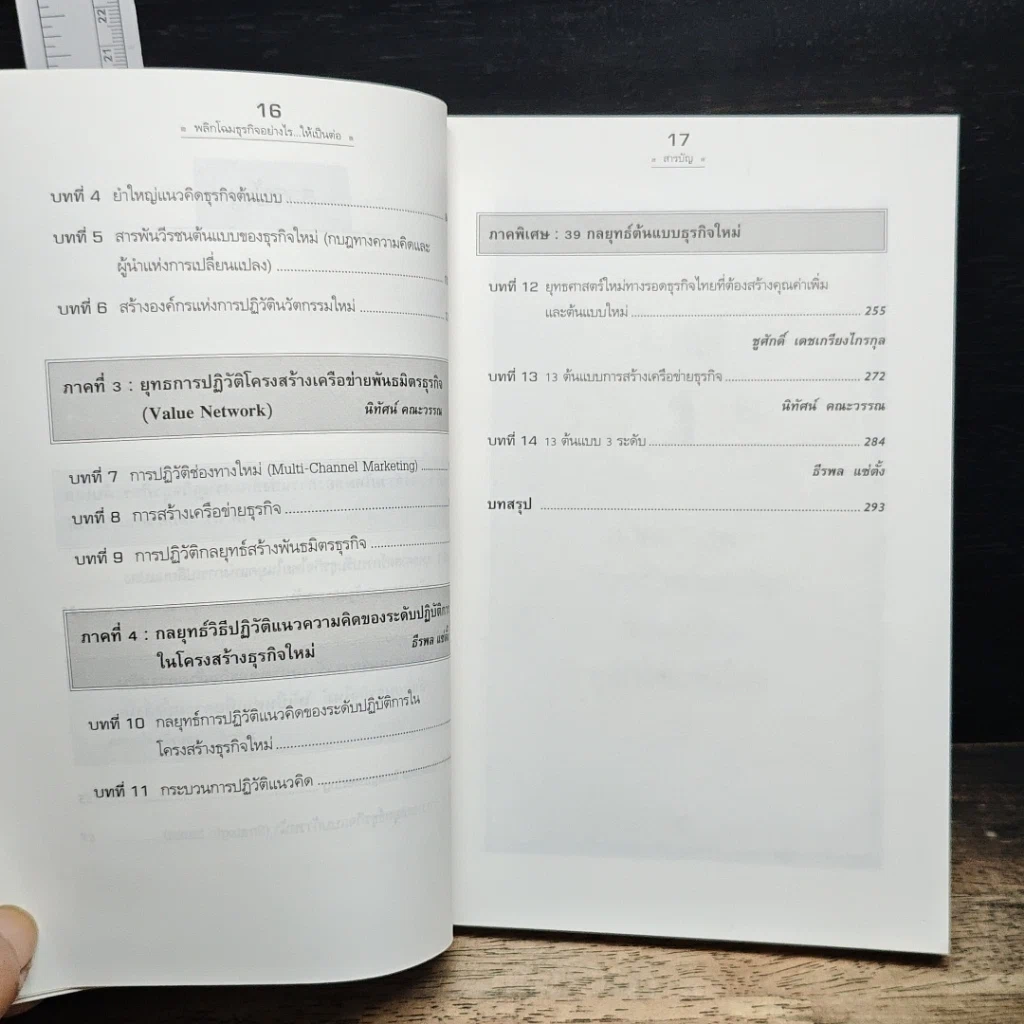 22
21
16
พลิกโฉมธุรกิจอย่างไร...ให้เป็นต่อ
บทที่ 4 ยำใหญ่แนวคิดธุรกิจต้นแบบ
บทที่ 5 สารพันวีรชนต้นแบบของธุรกิจใหม่ (กบฏทางความคิดและ
ผู้นำแห่งการเปลี่ยนแปลง)
บทที่ 6 สร้างองค์กรแห่งการปฏิวัตินวัตกรรมใหม่
ภาคที่ 3 : ยุทธการปฏิวัติโครงสร้างเครือข่ายพันธมิตรธุรกิจ
(Value Network) นิทัศน์ คณะวรรณ
บทที่ 7 การปฏิวัติช่องทางใหม่ (Multi-Channel Marketing)
บทที่ 8 การสร้างเครือข่ายธุรกิจ
บทที่ 9 การปฏิวัติกลยุทธ์สร้างพันธมิตรธุรกิจ
ภาคที่ 4 : กลยุทธ์วิธีปฏิวัติแนวความคิดของระดับปฏิบัติการ
ในโครงสร้างธุรกิจใหม่ ธีรพล แซ่ตั้ง
บทที่ 10 กลยุทธ์การปฏิวัติแนวคิดของระดับปฏิบัติการใน
โครงสร้างธุรกิจใหม่
บทที่ 11 กระบวนการปฏิวัติแนวคิด
17
สารบัญ
ภาคพิเศษ : 39 กลยุทธ์ต้นแบบธุรกิจใหม่
บทที่ 12 ยุทธศาสตร์ใหม่ทางรอดธุรกิจไทยที่ต้องสร้างคุณค่าเพิ่ม
และต้นแบบใหม่ 255
ชูศักดิ์ เดชเกรียงไกรกุล
บทที่ 13 13 ต้นแบบการสร้างเครือข่ายธุรกิจ 272
นิทัศน์ คณะวรรณ
บทที่ 14 13 ต้นแบบ 3 ระดับ 284
ธีรพล แซ่ตั้ง
บทสรุป 293